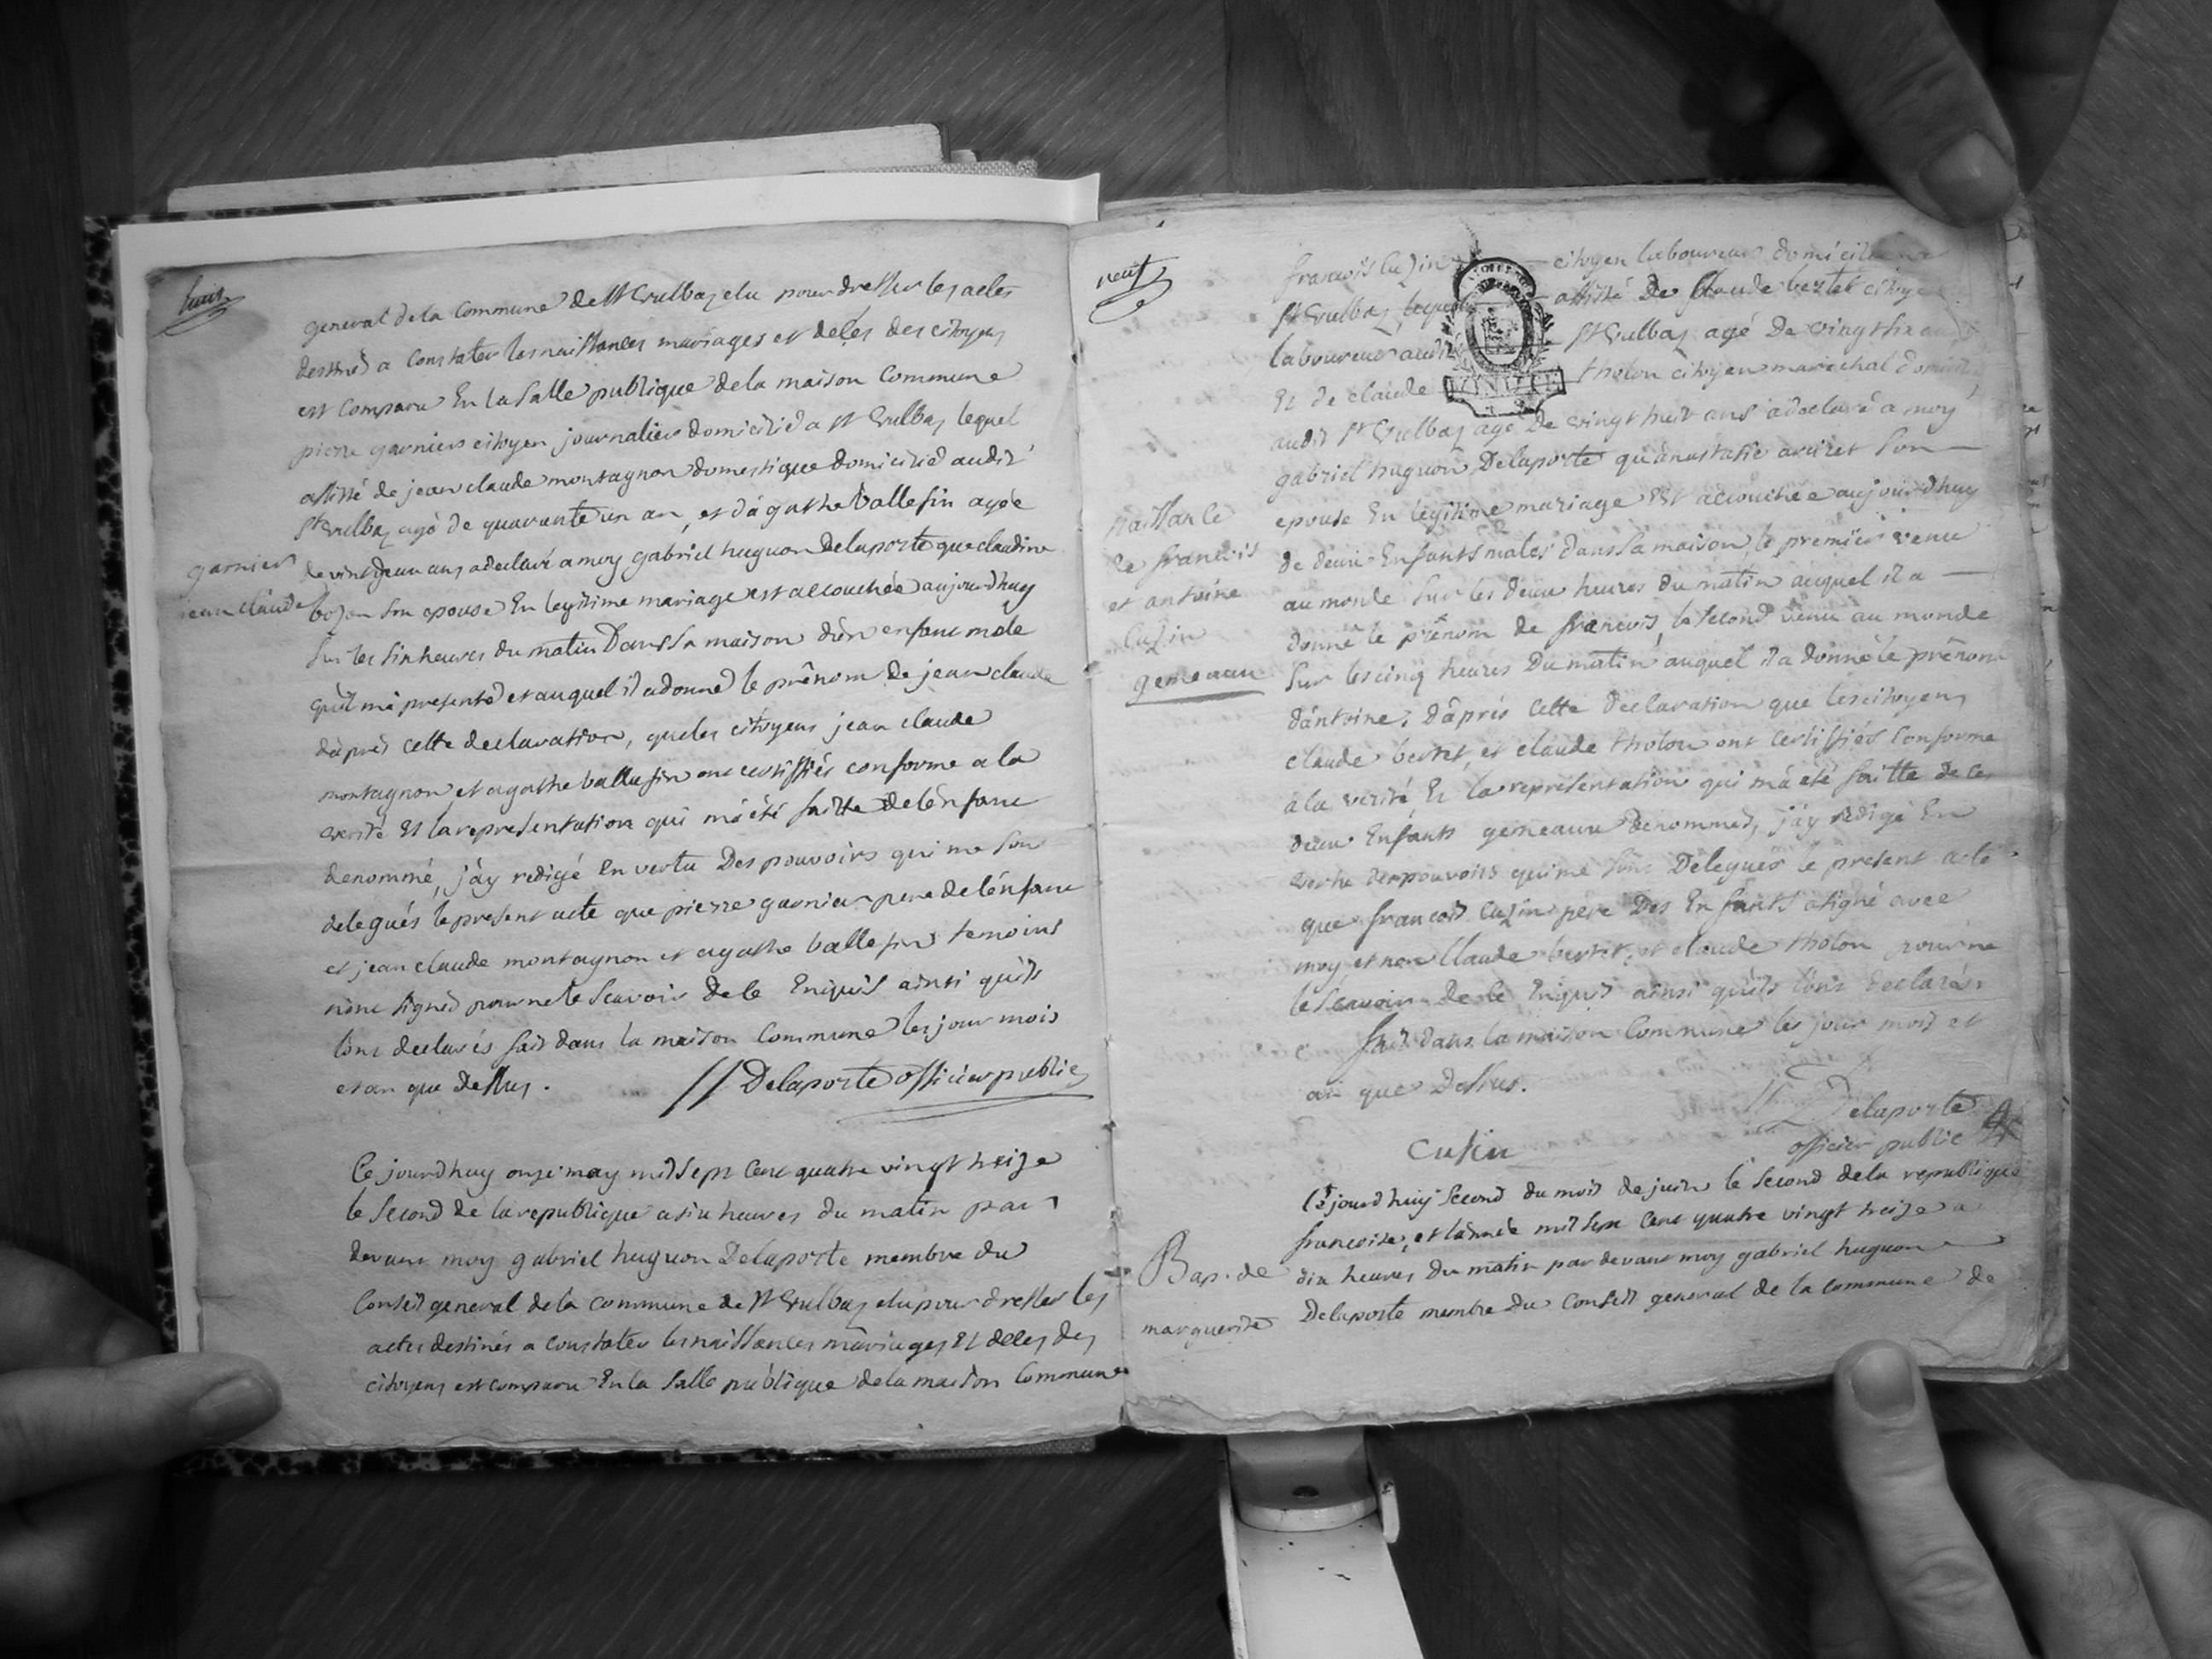 huit
general de la Commune de St Vulbaz elu pour dresser les actes
destinés a constater les naissances mariages et deces des citoyens
est Comparu En la Salle publique de la maison Commune
pierre garnier citoyen journalier domicilié a St Vulbaz lequel
assisté de jean claude montagnon domestique domicilié audit
St Vulbaz agé de quarante un an, et d'agathe Vallefin agée
garnier
jean claude
de vingt deux ans a declaré a moy gabriel huguon Delaporte que claudine
bozon son epouse En legitime mariage est accouchée aujourdhuy
sur les six heures du matin Dans sa maison d'un enfant mâle
qu'il ma presenté et auquel il a donné le prénom de jean claude
daprès cette declaration, que les citoyens jean claude
montagnon et agathe ballefin ont certiffiés conforme a la
verité Et la representation qui m'a été faitte de l'enfant
denommé, j'ay redigé En vertu Des pouvoirs qui me sont
delegués le present acte que pierre garnier pere de l'enfant
et jean claude montagnon et agathe ballefin temoins
n'ont signés pour ne le scavoir de ce Enquis ainsi qu'ils
l'ont declarés fait dans la maison Commune les jour mois
et an que dessus.
Delaporte officier public
Ce jourdhuy onze may mil sept Cent quatre vingt treize
le Second de la republique a six heures du matin par
devant moy gabriel huguon Delaporte membre du
Conseil general de la commune de St Vulbaz elu pour dresser les
actes destinés a constater les naissances mariages Et deces des
citoyens est comparu En la Salle publique de la maison Commune
neuf
francois Cuzin citoyen laboureur domicilié
St Vulbaz, lequel assisté De Claude bertet citoyen
laboureur audit St Vulbaz agé De vingt six ans
Et de claude tholon citoyen marechal
audit St Vulbaz agé De vingt huit ans a declaré a moy
gabriel huguon Delaporte qu'anastasie son
naissance
de francois
et antoine
Cuzin
gemeaux
epouse En legitime mariage Est accouchée aujourdhuy
de deux Enfants males dans sa maison, le premier venu
au monde sur les deux heures du matin auquel il a
donné le prénom de francois, le second venu au monde
sur les cinq heures Du matin auquel il a donné le prénom
d'antoine; d'après Cette Declaration que les citoyens
claude bertet, et claude tholon ont certiffiés Conforme
a la verité Et la representation qui m'a été faitte de ces
deux Enfants gemeaux denommés, j'ay redigé En
vertu des pouvoirs qui me sont Delegués le present acte
que francois Cuzin pere Des Enfants a signé avec
moy et non Claude bertet, et claude tholon pour ne
le scavoir de ce Enquis ainsi qu'ils l'ont declarés
fait dans la maison Commune les jour mois et
an que Dessus.
Delaporte
officier public
Cusin
Ce jourd'huy Second du mois de juin le Second de la republique
francoise, et l'année mil sept Cent quatre vingt treize a
Bap. de
marguerite
dix heures du matin par devant moy gabriel huguon
Delaporte membre du Conseil general de la commune de